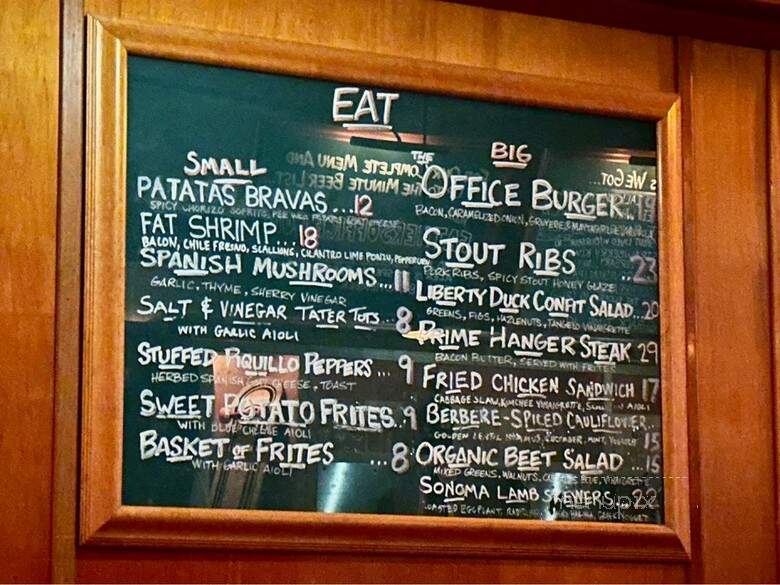 EAT
SMALL
PATATAS BRAVAS...12
SPICY CHORIZO SOFRITO,
FAT SHRIMP...18
BACON, CHILE FRESNO, SCALLIONS, CILANTRO LIME PONZU,
SPANISH MUSHROOMS...11
GARLIC, THYME, SHERRY VINEGAR
SALT & VINEGAR TATER TOTS...8
WITH GARLIC AIOLI
STUFFED PIQUILLO PEPPERS...9
HERBED SPANISH GOAT CHEESE, TOAST
SWEET POTATO FRITES.9
WITH BLUE CHEESE AIOLI
BASKET OF FRITES ...8
WITH GARLIC AIOLI
BIG
THE OFFICE BURGER..19
BACON, CARAMELIZED ONION, GRUYERE &
STOUT RIBS ..23
PORK RIBS, SPICY STOUT HONEY GLAZE
LIBERTY DUCK CONFIT SALAD...20
GREENS, FIGS, HAZLENUTS, TANGELO VINAIGRETTE
PRIME HANGER STEAK 29
BACON BUTTER, SERVED WITH FRITES
FRIED CHICKEN SANDWICH 17
CABBAGE SLAW, KIMCHEE VINAIGRETTE, AIOLI
BERBERE-SPICED CAULIFLOWER..
GOLDEN LENTIL HUMMUS, CUCUMBER, MINT, YOGURT 15
ORGANIC BEET SALAD ...15
MIXED GREENS, WALNUTS, BLUE, VINAIGRETTE
SONOMA LAMB SKEWERS...22
ROASTED EGGPLANT, GREEK YOGURT
menupix